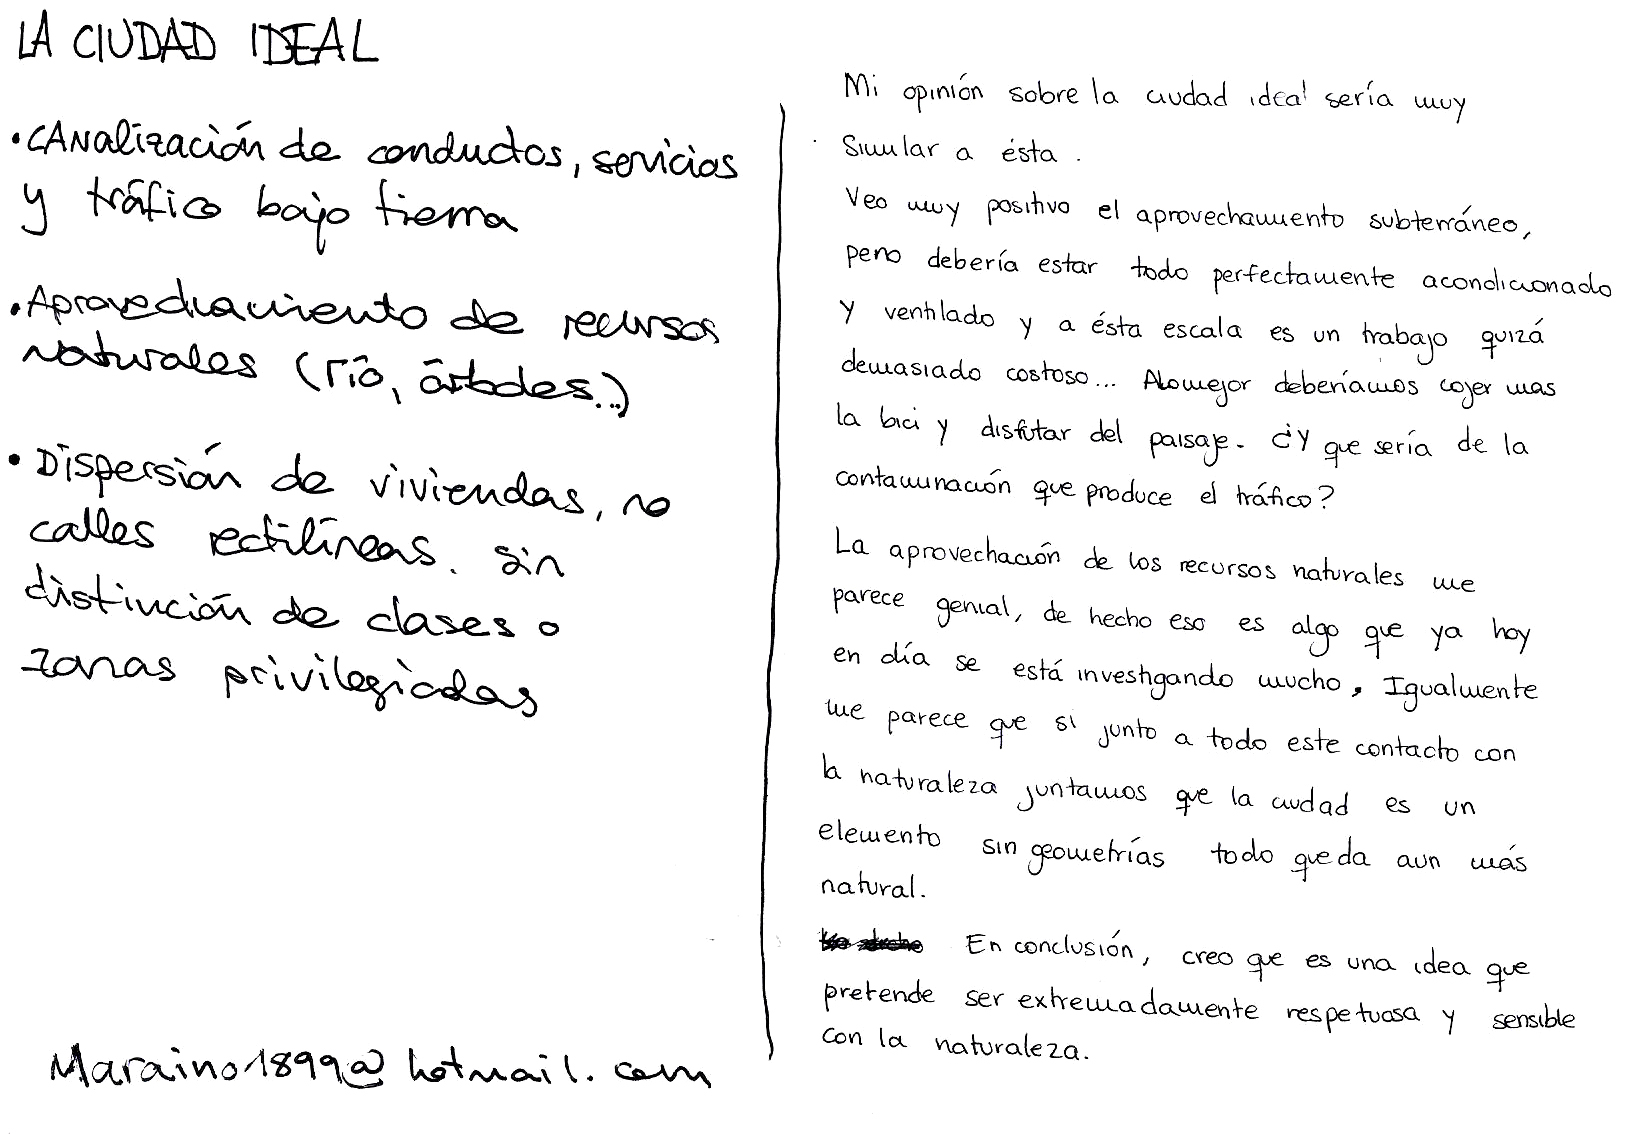 LA CIUDAD IDEAL
• CANalización de conductos, servicios
y tráfico bajo tierra
• Aprovechamiento de recursos
Naturales (río, árboles...)
• Dispersión de viviendas, no
calles rectilíneas. Sin
distinción de clases o
zonas privilegiadas
Maraino1899@hotmail.com
Mi opinión sobre la ciudad ideal sería muy
Similar a ésta.
Veo muy positivo el aprovechamiento subterráneo,
pero debería estar todo perfectamente acondicionado
y ventilado y a ésta escala es un trabajo quizá
demasiado costoso... Alomejor deberíamos cojer mas
la bici y disfutar del paisaje. ¿Y que sería de la
contaminación que produce el tráfico?
La aprovechación de los recursos naturales me
parece genial, de hecho eso es algo que ya hoy
en día se está investigando mucho, Igualmente
me parece que si junto a todo este contacto con
la naturaleza juntamos que la ciudad es un
elemento sin geometrías todo queda aun más
natural.
En conclusión, creo que es una idea que
pretende ser extremadamente respetuosa y sensible
con la naturaleza.